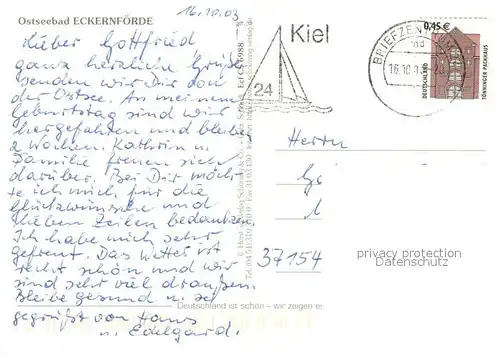 16.10.03
Ostseebad ECKERNFÖRDE
Lieber Gottfried
ganz herzliche Grüße
senden wir Dir von
der Ostsee. An meinem
Geburtstag sind wir
hergefahren und bleiben
2 Wochen. Kathrin u.
Familie freuen sich
darüber. Bei Dir möch-
te ich mich für die
Glückwünsche und
lieben Zeilen bedanken.
Ich habe mich sehr
gefreut. Das Wetter ist
recht schön und wir
sind sehr viel draußen.
Bleibe gesund u. sei
gegrüßt von Hans
u. Edelgard.
Kiel
24
BRIEFZENTRUM
16.10.
0,45 €
DEUTSCHLAND
TÖNNINGER PACKHAUS
Herrn
37154
privacy protection
Datenschutz
Deutschland ist schön – wir zeigen es